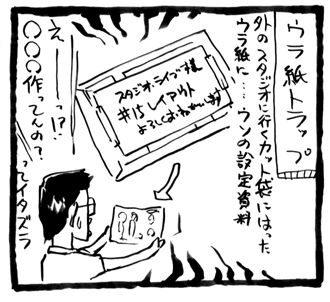 ウラ紙トラップ
外のスタジオに行くカット袋にはった
ウラ紙に……ウソの設定資料
スタジオ・ライブ様
#15 レイアウト
よろしくおねがいします
え――っ!?
○○○作ってんの?
ってイタズラ